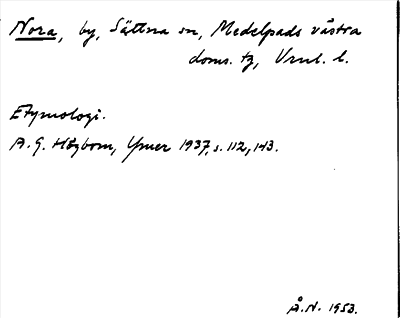 Nora, by, Sättna sn, Medelpads västra
doms. tg, Vrnl. l.
Etymologi.
A. G. Högbom, Ymer 1937, s. 112, 143.
Å.N. 1953.